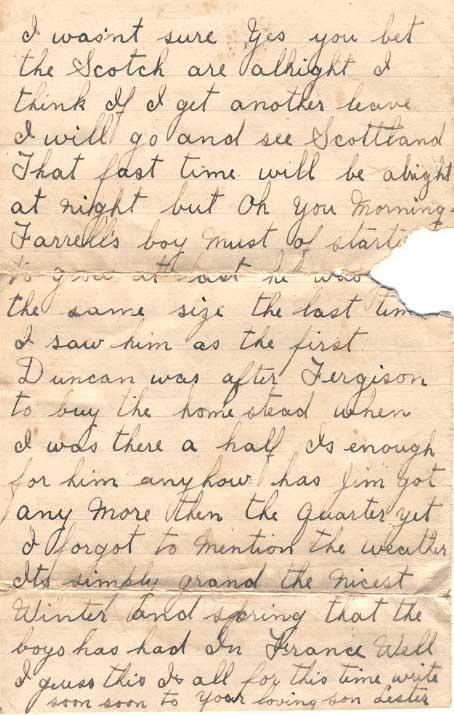 I wasn't sure Yes you bet
the Scotch are alright I
think If I get another leave
I will go and see Scottland
That fast time will be alright
at night but Oh you Morning.
Farrell's boy Must of start
to grow at last he was
the same size the last tim
I saw him as the first.
Duncan was after Fergison
to buy the homestead when
I was there a half Is enough
for him anyhow has Jim got
any More then the quarter yet
I forgot to Mention the weather
Its simply grand the nicest
Winter and spring that the
boys has had In France Well
I guess this Is all for this time write
soon soon to Your loving son Lester